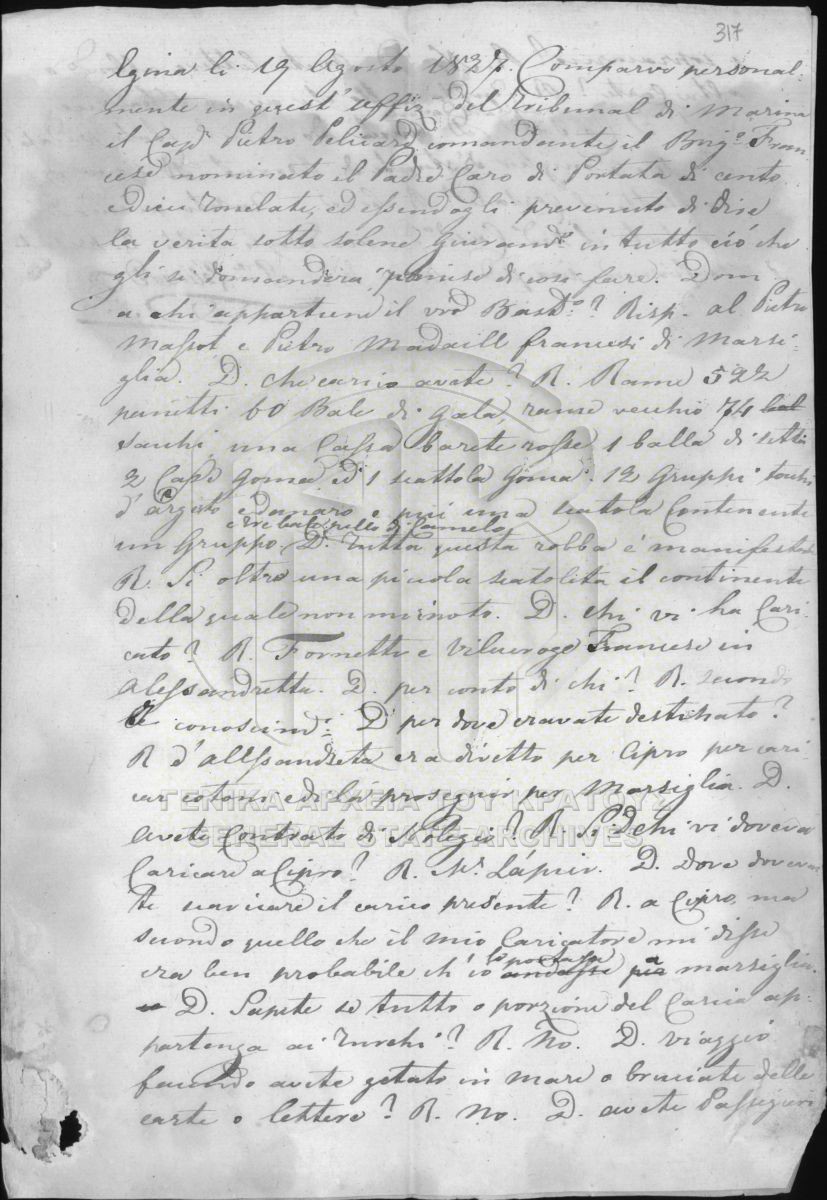 317
Egina li 19 Agosto 1827. Comparve personal-
mente in quest' uffiz° del Tribunal di Marina
il Cap° Pietro Pelicard comandante il Brig° Fran-
cese nominato il Padre Caro di Portata di cento
edieci Tonelate, ed essendogli prevenuto di dire
la verità sotto solene Giuram° in tutto ciò che
gli si domanderà, promise di così fare. Dom
a chi appartiene il vro Bast°? Risp. al Pietro
Massot e Pietro Madaill francesi di Marsi-
glia. D. che carico avete? R. Rame 522
panetti 60 Bale di Gala, rame vecchio 74
sacchi, una Cassa barete rosse 1 balla di
2 Cas° Goma ed 1 scattola Goma. 12 Gruppi
d'argento e danaro e più una scatola Continente
e tre bale pello di Camelo
un Gruppo. D. Tutta questa robba è manifestata
R. Si oltre una picola scatolita il continente
della quale non mi è noto. D. chi vi ha Cari-
cato? R. Fornetti e Francese in
Alessandretta. D. per conto di chi? R. secondo
le conoscim: D. per dove eravate destinato?
R d'alessandreta era diretto per Cipro per cari-
car cotoni ed di là proseguir per Marsiglia. D.
avete Contrato di Nolegio? R. Si D chi vi doveva
Caricare a Cipro? R. Mr. Lapier. D. Dove doveva-
te scaricare il carico presente? R. a Cipro, ma
secondo quello che il mio Caricatore mi disse
lo portassi a
era ben probabile ch'io andassi per marsiglia.
D. Sapete se tutto o porzione del Carico ap-
partenga ai Turchi? R. No. D. viaggio
facendo avete getato in mare o bruciate delle
carte o lettere? R. No. D. avete Passegieri
ΓΕΝΙΚΑ ΑΡΧΕΙΑ ΤΟΥ ΚΡΑΤΟΥΣ
GENERAL STATE ARCHIVES